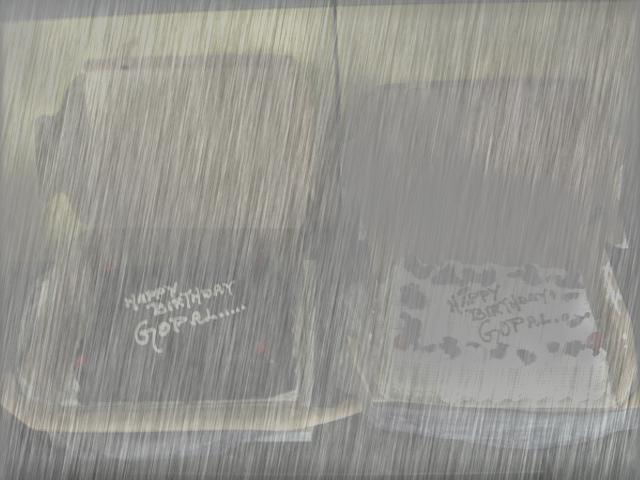 HAPPY
BIRTHDAY
GOPAL.....
HAPPY
BIRTHDAY
GOPAL...